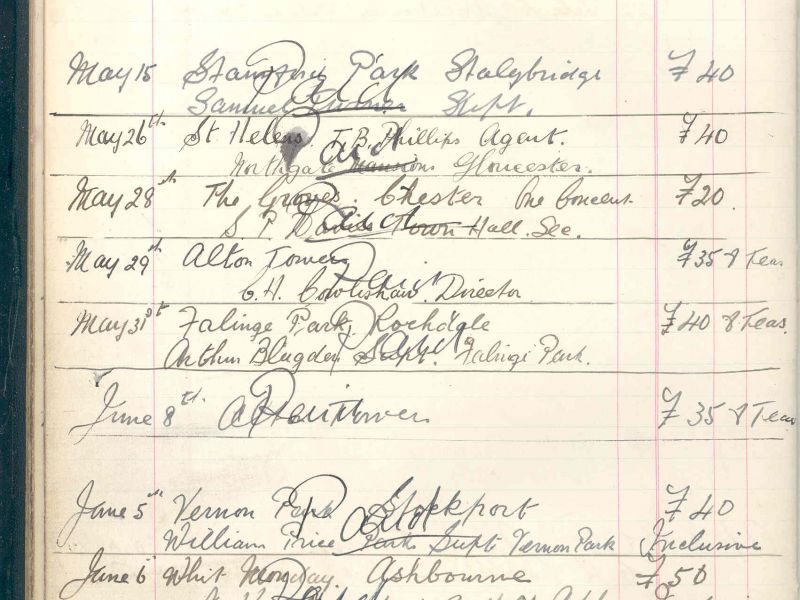 May 15 Stamford Park Stalybridge £40
Samuel Supt.
May 26th St Helens. J. B. Phillips Agent. £40
Northgate Mansions Gloucester.
May 28th The Groves. Chester One Concert £20
S. P. Town Hall. Sec.
May 29th Alton Towers £35 & Teas
C. H. Cowlishaw. Director
May 31st Falinge Park, Rochdale £40 & Teas.
Arthur Blugden Supt. Falinge Park.
June 8th Alton Towers £35 & Teas
June 5th Vernon Park Stockport £40
William Price Parks Supt Vernon Park Inclusive
June 6 Whit Monday Ashbourne £50